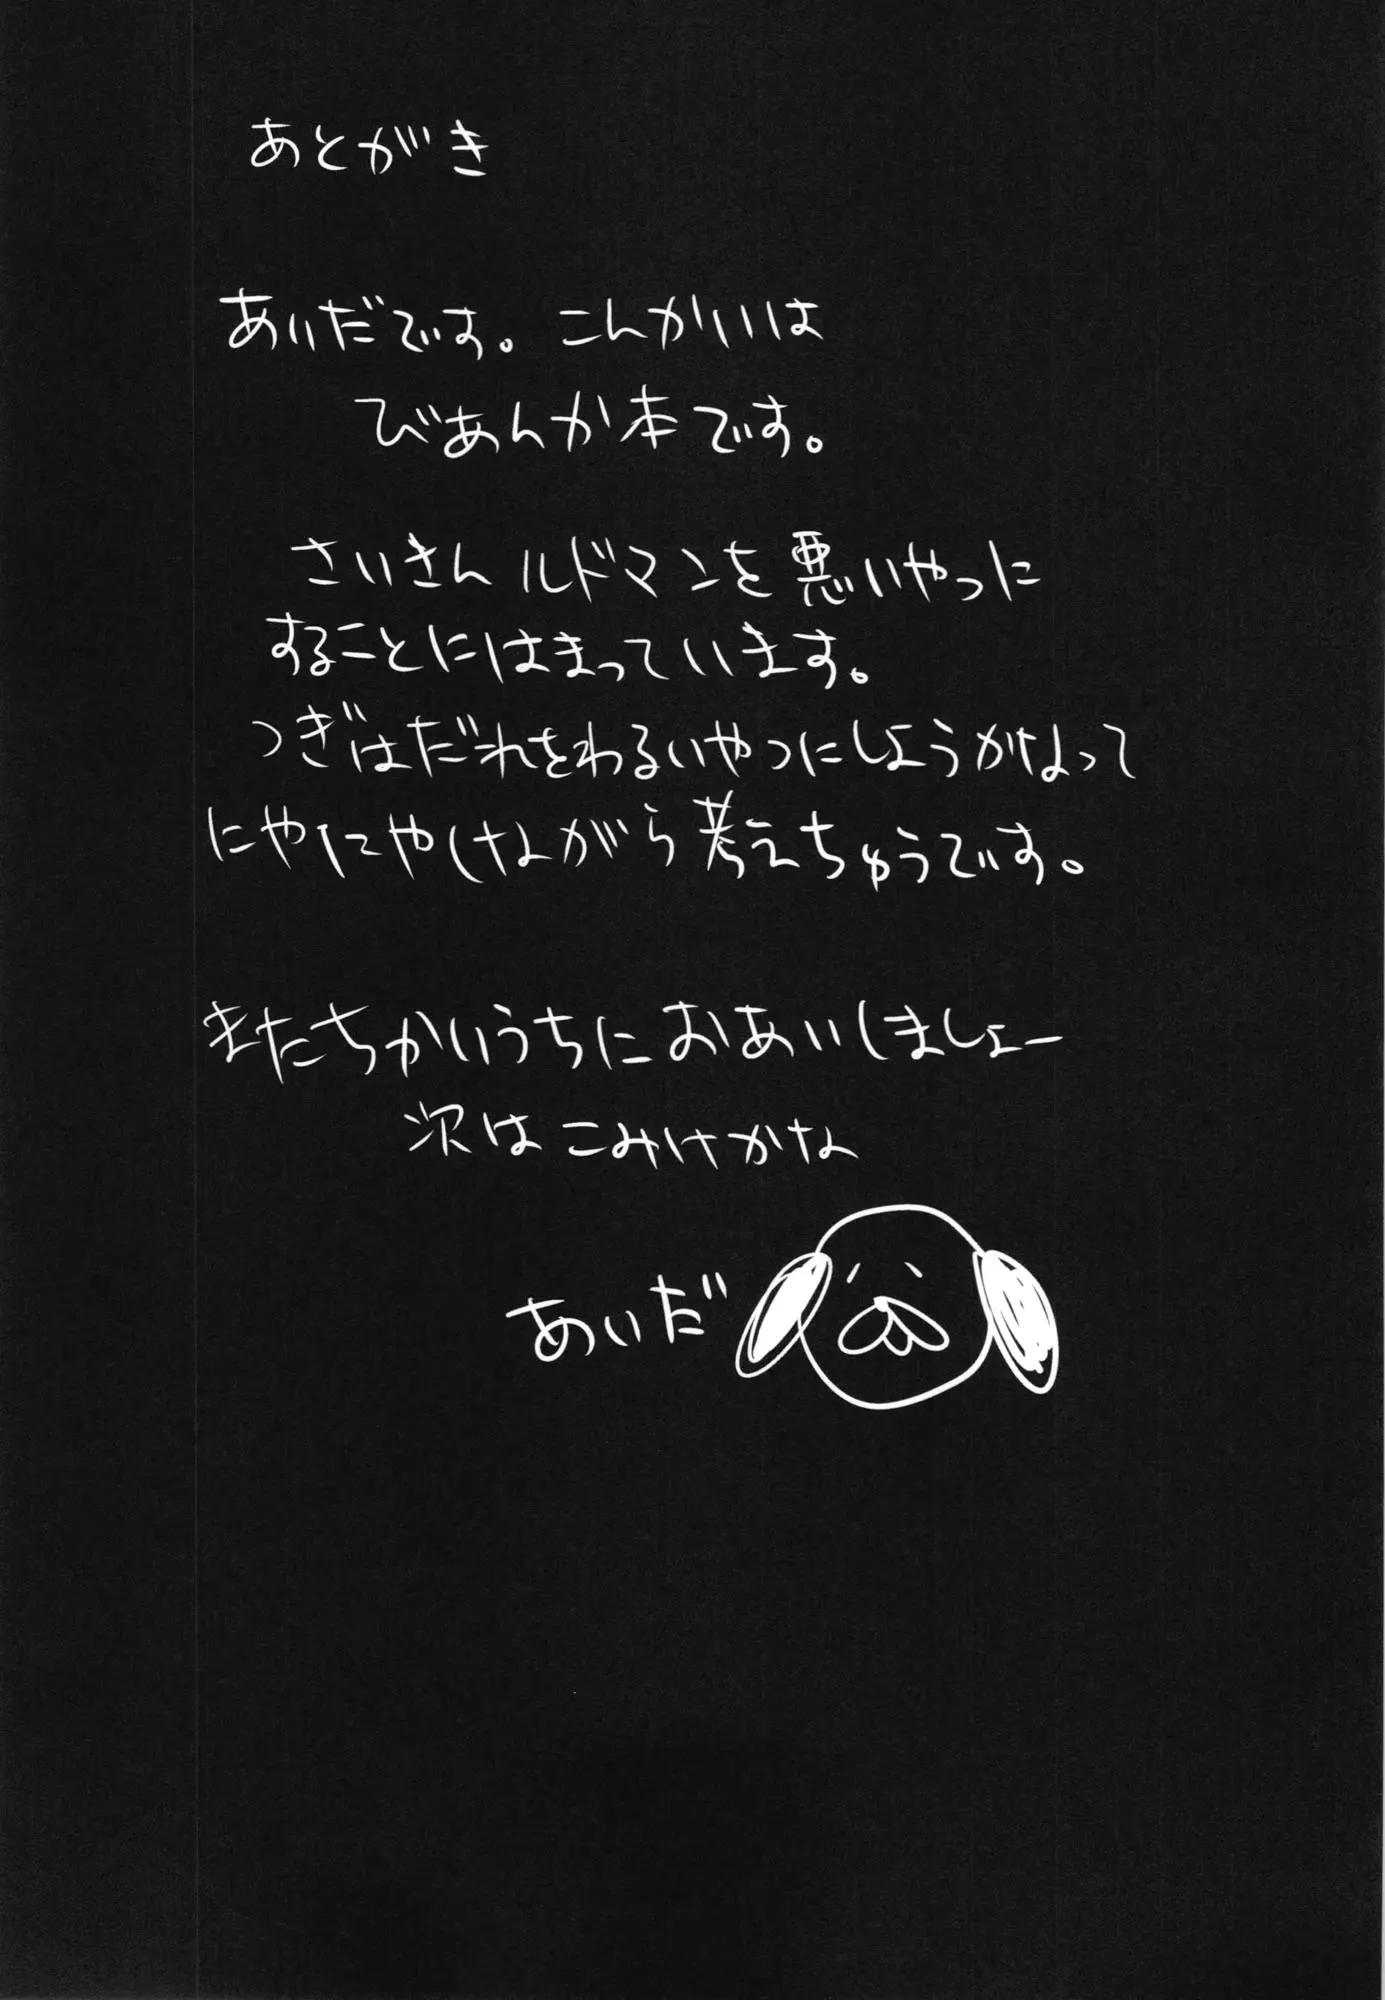 あとがき
あいだです。こんかいは
びあんか本です。
さいきんルドマンを悪いやつに
することにはまっています。
つぎはだれをわるいやつにしようかなって
にやにやしながら考えちゅうです。
またちかいうちにおあいしましょー
次はこみけかな
あいだ